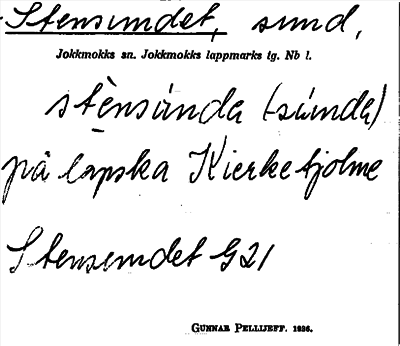 Stensundet, sund,
Jokkmokks sn. Jokkmokks lappmarks tg. Nb l.
stènsùnda (sùnda)
på lapska Kierketjolme
Stensundet G21
GUNNAR PELLIJEFF. 1936.